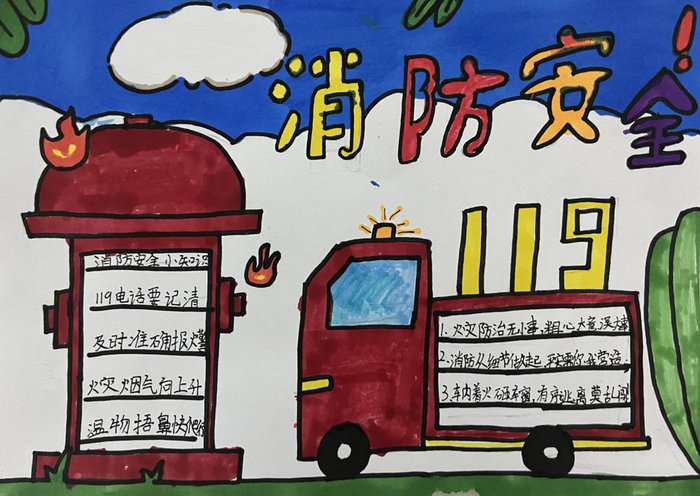 消防安全!
消防安全小知识
119电话要记清
及时准确报火警
火灾烟气向上升
湿物捂鼻快爬行
119
1. 火灾防治无小事,粗心大意
2. 消防从细节做起,
3. 车内着火砸车窗,有序逃离莫